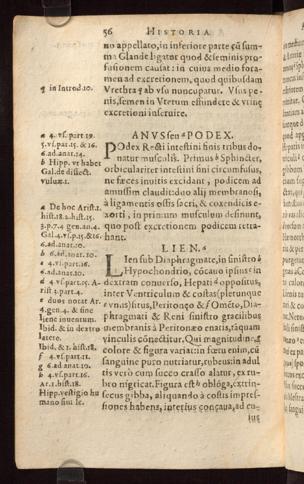 56 HISTORIA
no appellato, in inferiore parte cũ sum-
ma Glande ligatur quod & seminis pro-
fusionem causat: in cuius medio fora-
men ad excretionem, quod quibusdam
g in Introd.10.
Vrethra g ab vsu nuncupatur. Vsus pe-
nis, semen in Vterum effundere & vrinę
excretioni inseruire.
ANVS seu a PODEX.
a 4. vs. part. 19.
5. vs. pat. 15. & 16.
6. ad. anat. 14.
b Hipp. vt habet
Gal. de dissect.
vuluæ. 1.
POdex Recti intestini finis tribus do-
natur musculis. Primus b Sphincter,
orbiculariter intestini fini circumfusus,
ne fæces inuitis excidant, podicem ad
amussim claudit: duo alij membranosi,
à ligamentis ossis sacri, & coxendicis e-
xorti, in primum musculum desinunt,
quo post excretionem podicem retra-
hant.
LIEN. a
a De hoc Arist. 1.
hist. 18. 2. hist. 15.
3. p. 7. 4. gen. an. 4.
Gal. 4. vs. p. 15. & 16.
6. ad. anat. 10.
b 6. ad. anat. 10.
c 4. vs. part. 16.
6. ad. anat. 10.
d 4. vs. part. 15. A-
rist 3. part. 4.
e duos notat Ar.
4. gen. 4. & sine
liene interdum.
Ibid. & in dextro
latere.
Ibid. & 2. hist. 18.
f 4. vs. part. 11.
g 6. ad anat. 10.
h 4. vs. part. 16.
Ar. 1. hist. 18.
Hipp. vestigio hu
mano simile.
LIen sub Diaphragmate, in sinistro b
Hypochondrio, cõcauo ipsius c in
dextram conuerso, Hepati d oppositus,
inter Ventriculum & costas (plerunque
e vnus) situs, Peritonęo & Omẽto, Dia-
phragmati & Reni sinistro gracilibus
membranis à Peritonæo enatis, tãquam
vinculis cõnectitur. Qui magnitudine,
colore & figura variat: in fœtu enim, cũ
sanguine puro nutriatur, rubeus: in adul
tis verò cum succo crasso alatur, ex ru-
bro nigricat. Figura est h oblõga, extrin-
secus gibba, aliquando à costis impres-
siones habens, interius concaua, ad cu-
ius